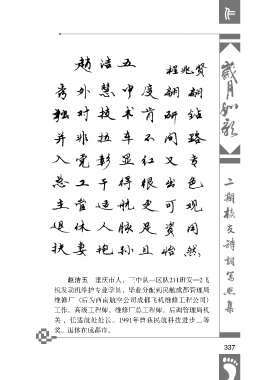 趙洁五
程兆贤
秀外慧中度翩翩
独对技术肯研钻
并非拉车不问路
入党彰显红又专
总工干得很出色
主管适航更可观
退休人脉足资用
扶妻抱孙且怡然
赵洁五　重庆市人，二中队一区队211班安—2飞
机发动机维护专业学员，毕业分配到民航成都管理局
维修厂（后为西南航空公司成都飞机维修工程公司）
工作。高级工程师，维修厂总工程师，后调管理局机
关，任适航处处长。1991年曾获民航科技进步二等
奖。退休在成都市。
歲月如歌
二期校友诗词写照集
337